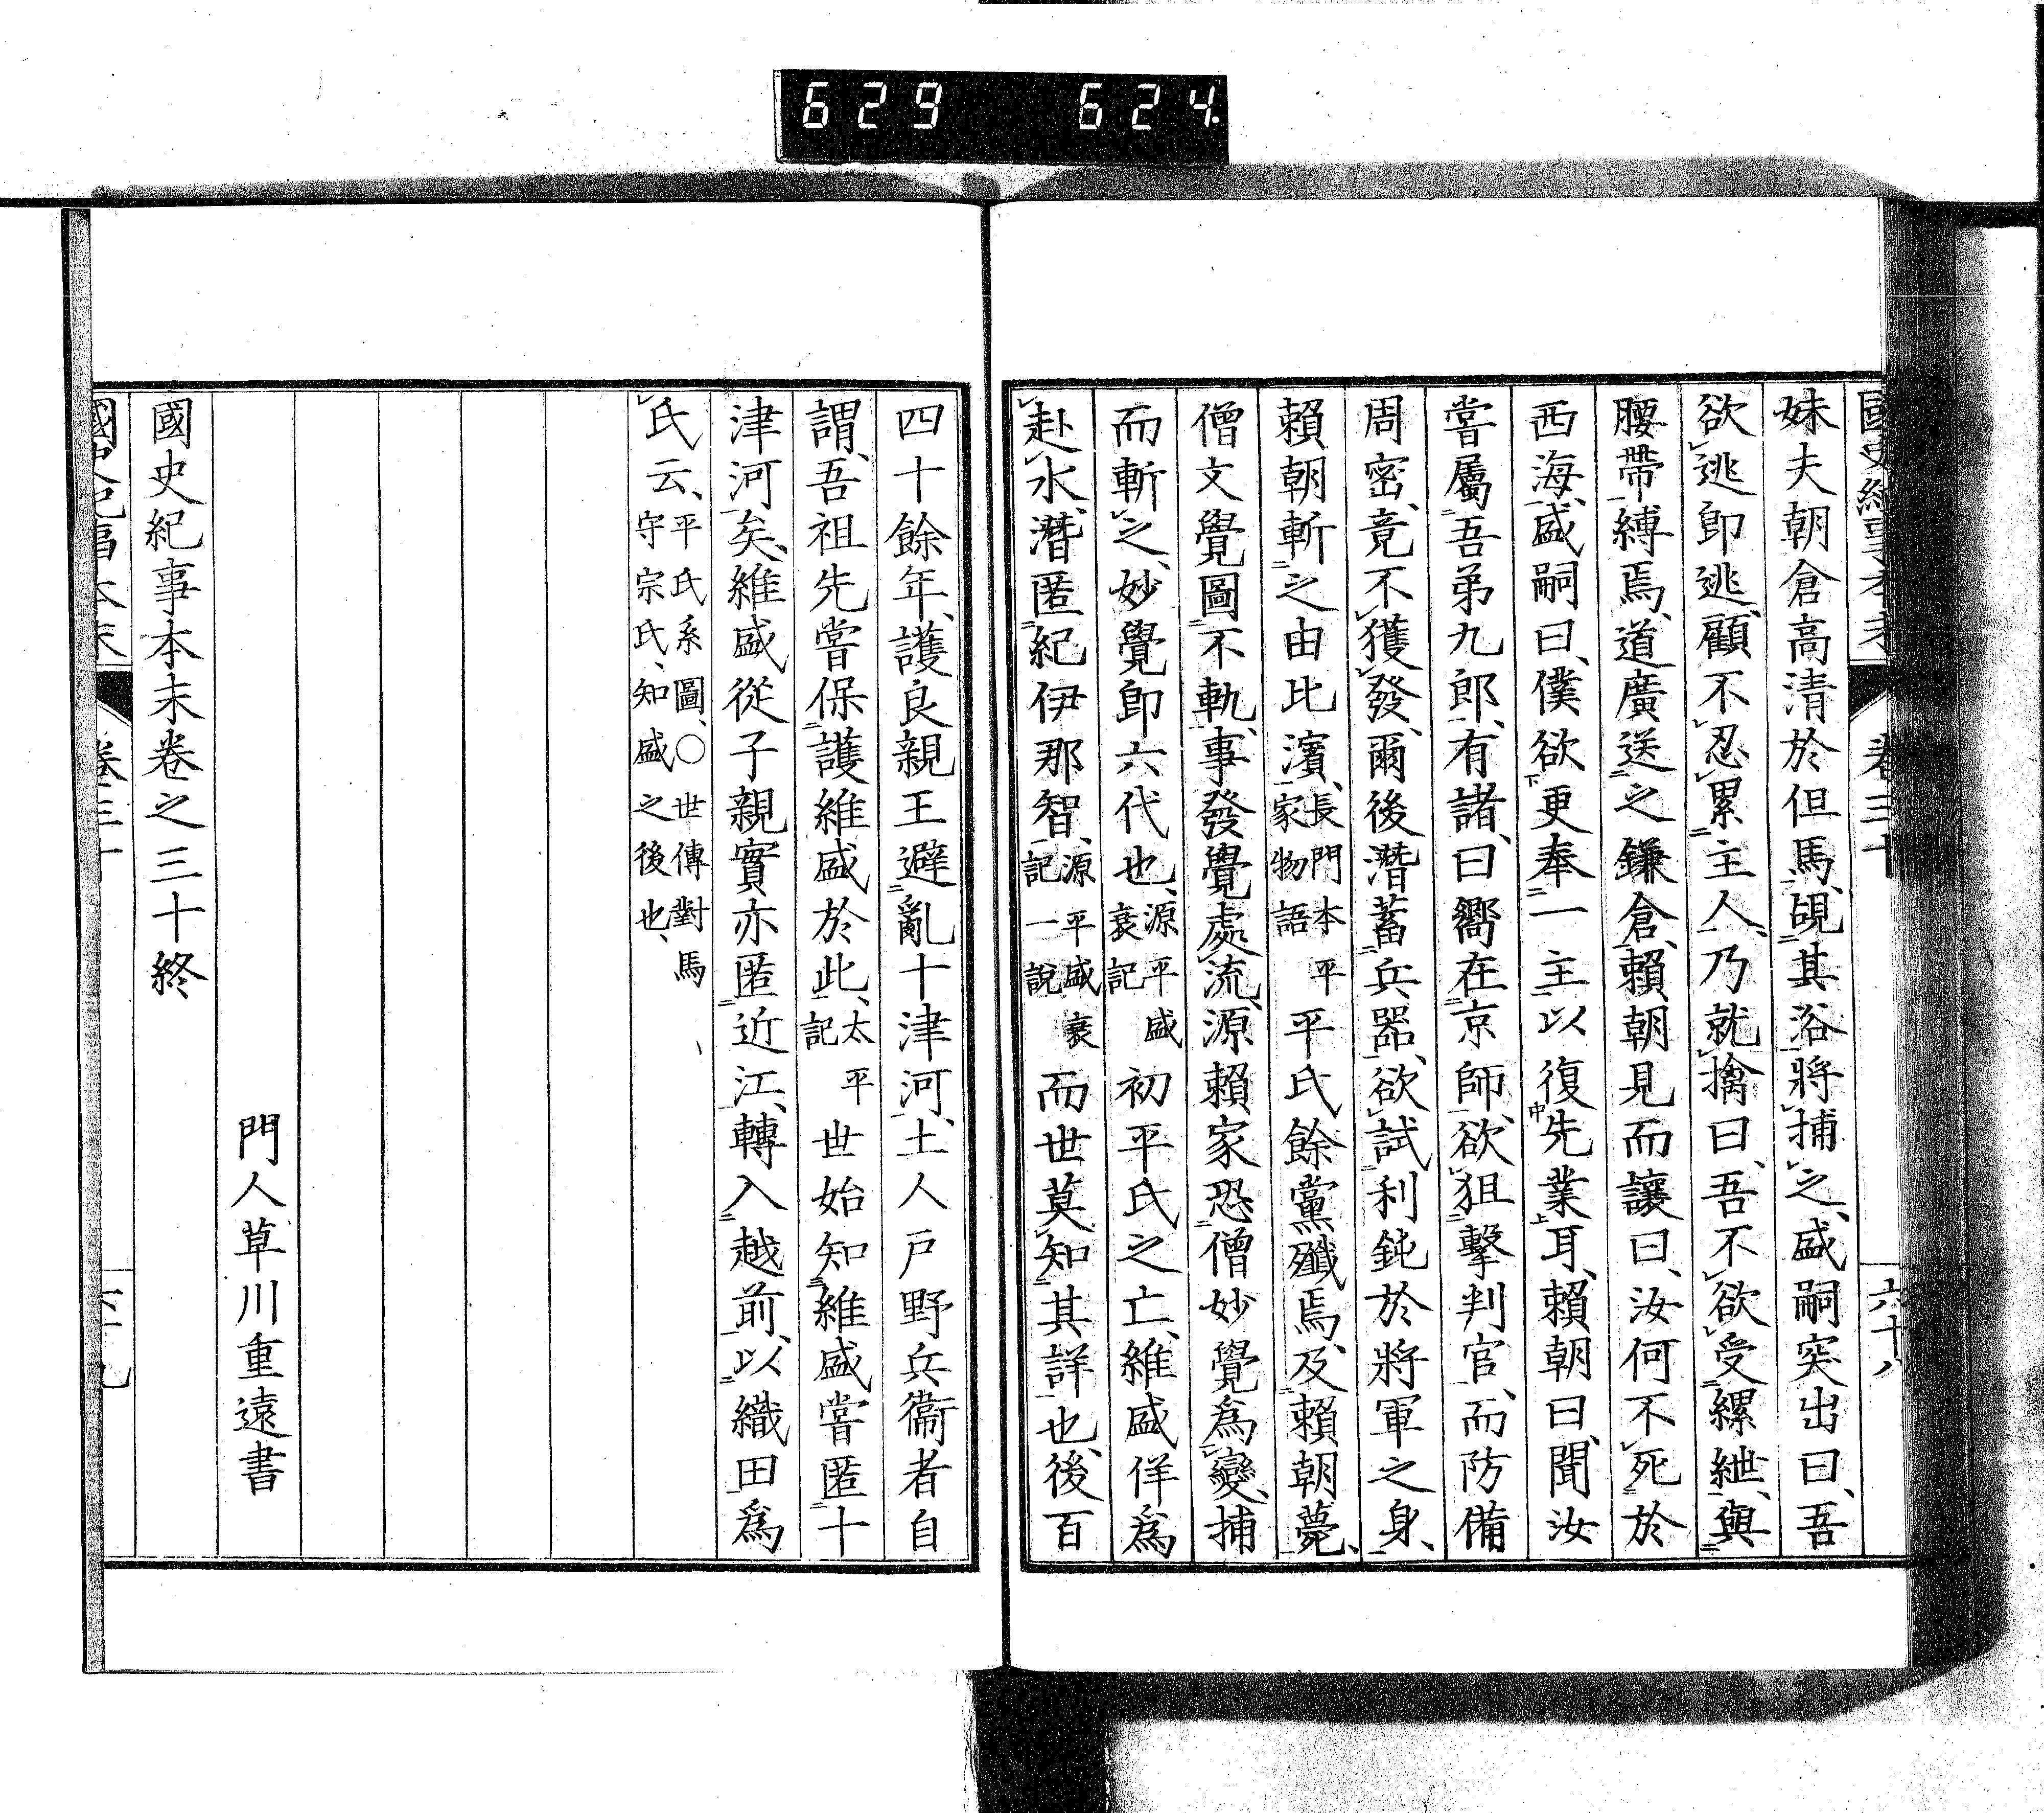 629 624.
妹夫朝倉高清於但馬、覘其浴將捕之、盛嗣突出曰、吾
欲逃即逃、顧不忍累主人、乃就擒曰、吾不欲受縲紲、與
腰帶縛焉、道廣送之鎌倉、賴朝見而讓曰、汝何不死於
西海、盛嗣曰、僕欲更奉一主以復先業耳、賴朝曰、聞汝
嘗屬吾弟九郎、有諸、曰嚮在京師、欲狙擊判官、而防備
周密、竟不獲發、爾後潛蓄兵器、欲試利鈍於將軍之身、
賴朝斬之由比濱、長門本平家物語平氏餘黨殲焉、及賴朝薨、
僧文覺圖不軌、事發覺處流、源賴家恐僧妙覺爲變、捕
而斬之、妙覺即六代也、源平盛衰記初平氏之亡、維盛佯爲
赴水、潛匿紀伊那智、源平盛衰記一說而世莫知其詳也、後百
四十餘年、護良親王避亂十津河、土人戸野兵衞者自
謂、吾祖先嘗保護維盛於此、太平記世始知維盛嘗匿十
津河矣、維盛從子親實亦匿近江、轉入越前、以織田爲
氏云、平氏系圖、〇世傳對馬守宗氏、知盛之後也、
門人草川重遠書
國史紀事本末卷之三十終
卷三十
六十八